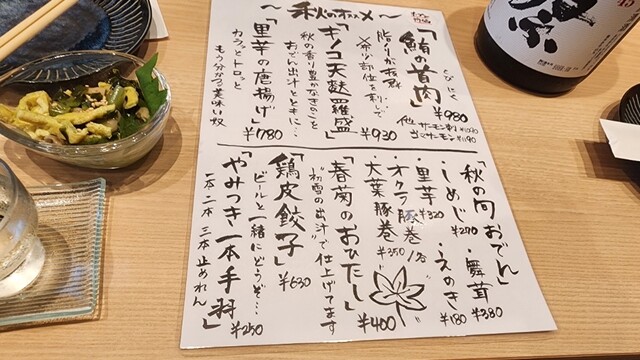 ～秋のオススメ～
「鮪の首肉」
くびにく
脂のりが抜群
¥980
他サーモン刺
「キノコ天麩羅盛」
秋の香り豊かなきのこと
おでん出汁とともに…
¥930
「里芋の唐揚げ」
カラッとトロっと
もう分かる美味い奴
¥780
「秋の旬おでん」
・しめじ ¥270
・舞茸 ¥380
・里芋 ¥320
・えのき ¥180
・オクラ豚巻
大葉豚巻 ¥350
「春菊のおひたし」
"初雪の出汁"で仕上げてます
¥400
「鶏皮餃子」
ビールと一緒にどうぞ…
¥630
「やみつき一本手羽」
一本二本三本止めれん
¥250